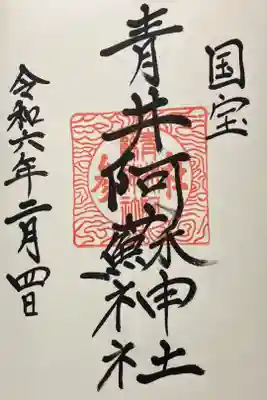 国宝
青井阿蘇神社
令和六年二月四日